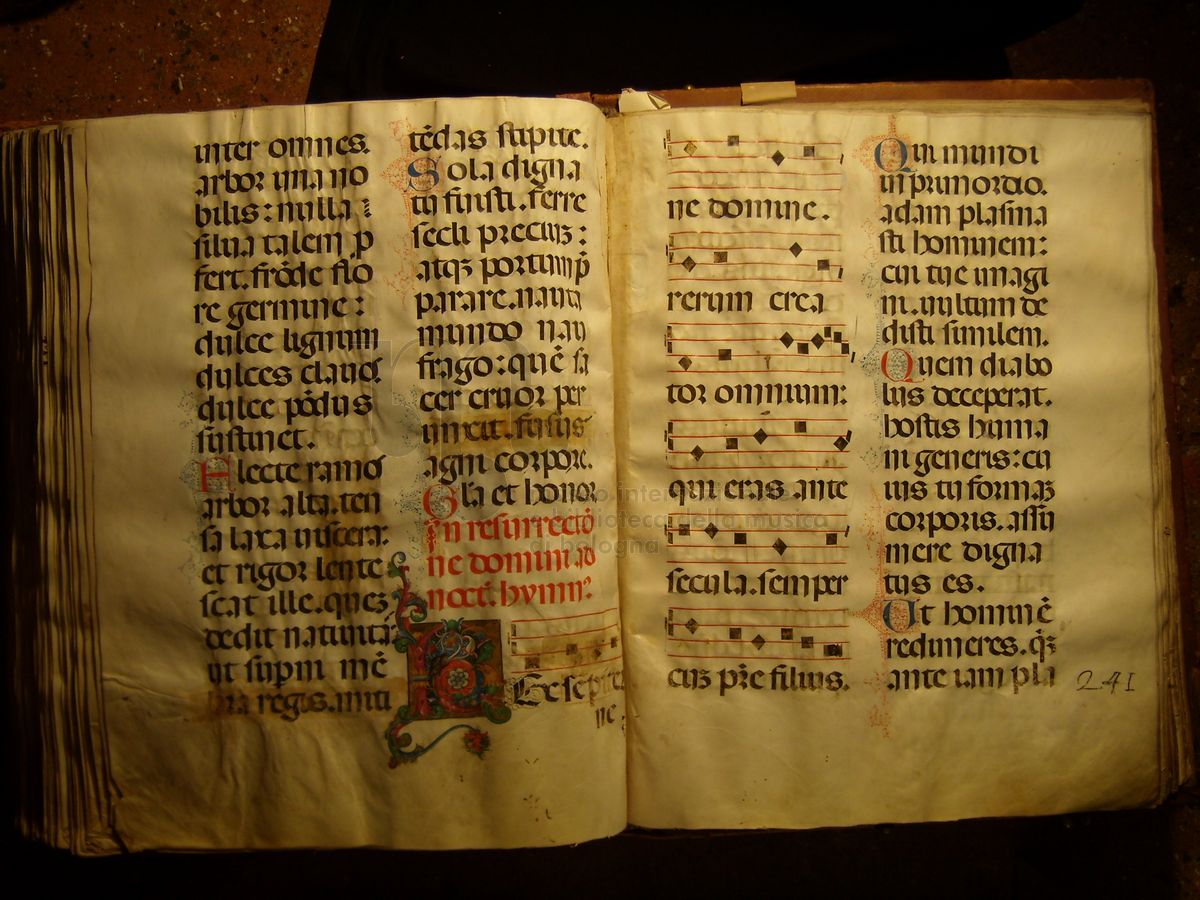 inter omnes.
arbor una no
bilis: nulla
silua talem p
fert. frōde flo
re germine:
dulce lignum
dulces clauos
dulce pōdus
sustinet.
Flecte ramos
arbor alta. ten
sa laxa uiscera:
et rigor lente
scat ille. quez
dedit natiuitas
ut supni mē
bra regis. miti
tēdas stipite.
Sola digna
tu fuisti. ferre
secli preciuz:
atqz portum p̄
parare. nauta
mundo nau
frago: quē sa
cer cruor per
unxit. fusus
agni corpore.
Gla et honor
In resurrectō
ne domini ad
noct. hymn?
REx sepite
ne
ne domine.
rerum crea
tor omnium:
qui eras ante
secula. semper
cuz pr̄e filius.
Qui mundi
in primordio.
adam plasma
sti hominem:
cui tue imagi
ni. uultum de
disti similem.
Quem diabo
lus deceperat.
hostis huma
ni generis: cu
ius tu formaz
corporis. assu
mere digna
tus es.
Ut hominē
redimeres. qz
ante iam pla
241
museo internazionale
e biblioteca della musica
di bologna